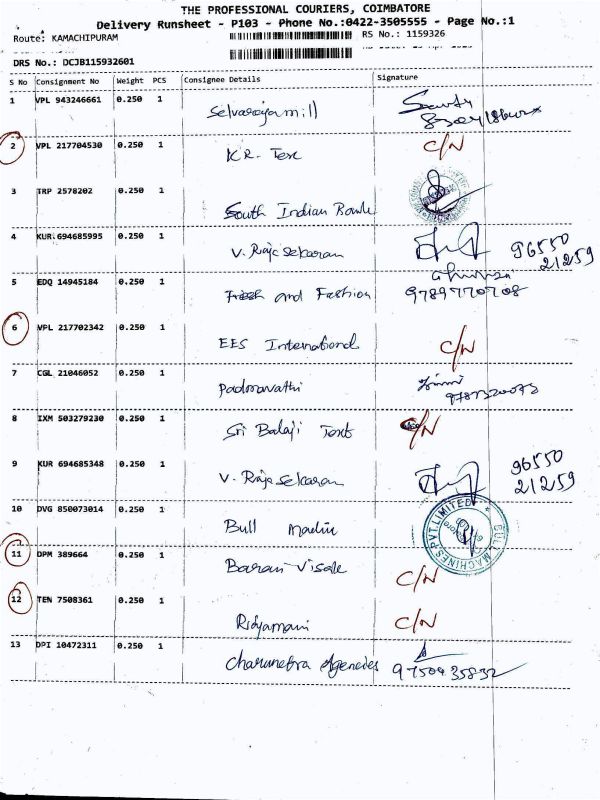 THE PROFESSIONAL COURIERS, COIMBATORE
Delivery Runsheet - P103 - Phone No.:0422-3505555 - Page No.:1
Route: KAMACHIPURAM RS No.: 1159326
DRS No.: DCJB115932601
S No Consignment No Weight PCS Consignee Details Signature
1 VPL 943246661 0.250 1 Selvarajamill
2 VPL 217704530 0.250 1 K.R. Tex C/N
3 TRP 2578202 0.250 1 South Indian Bank
4 KUR 694685995 0.250 1 V. Rajasekaran 96550 21259
5 EDQ 14945184 0.250 1 Fresh and Fashion 9789770708
6 VPL 217702342 0.250 1 EES International C/N
7 CGL 21046052 0.250 1 Padmavathi
8 IXM 503279230 0.250 1 Sri Balaji Texts C/N
9 KUR 694685348 0.250 1 V. Rajasekaran 96550 21259
10 DVG 850073014 0.250 1 Bull Machin BULL MACHINES PVT. LIMITED
11 DPM 389664 0.250 1 Baran Visale C/N
12 TEN 7508361 0.250 1 Ridyamani C/N
13 DPI 10472311 0.250 1 Charunetra Agencies 9750935832